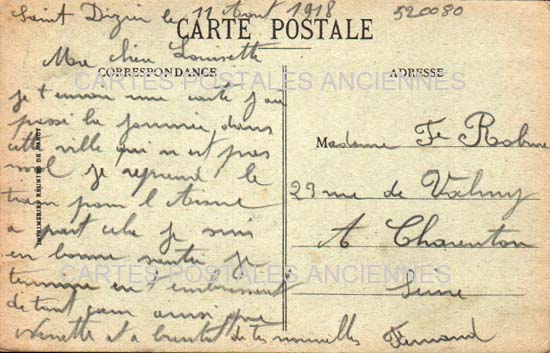 Saint Dizier le 11 Aout 1918
520080
CARTE POSTALE
Ma chère Louisette
CORRESPONDANCE
ADRESSE
CARTES POSTALES ANCIENNES
je t envoi une carte j ai
passé la journée dans
cette ville qui n est pas
mal je reprend le
train pour l Aisne
a part cela je suis
en bonne santé je
termine en t embrassant
de tout cœur ainsi que
et a bientot de tes nouvelles Fernand
Madame Fe
29 rue de Valmy
A Charenton
Seine
CARTES POSTALES ANCIENNES
IMPRIMERIES REUNIES DE NANCY